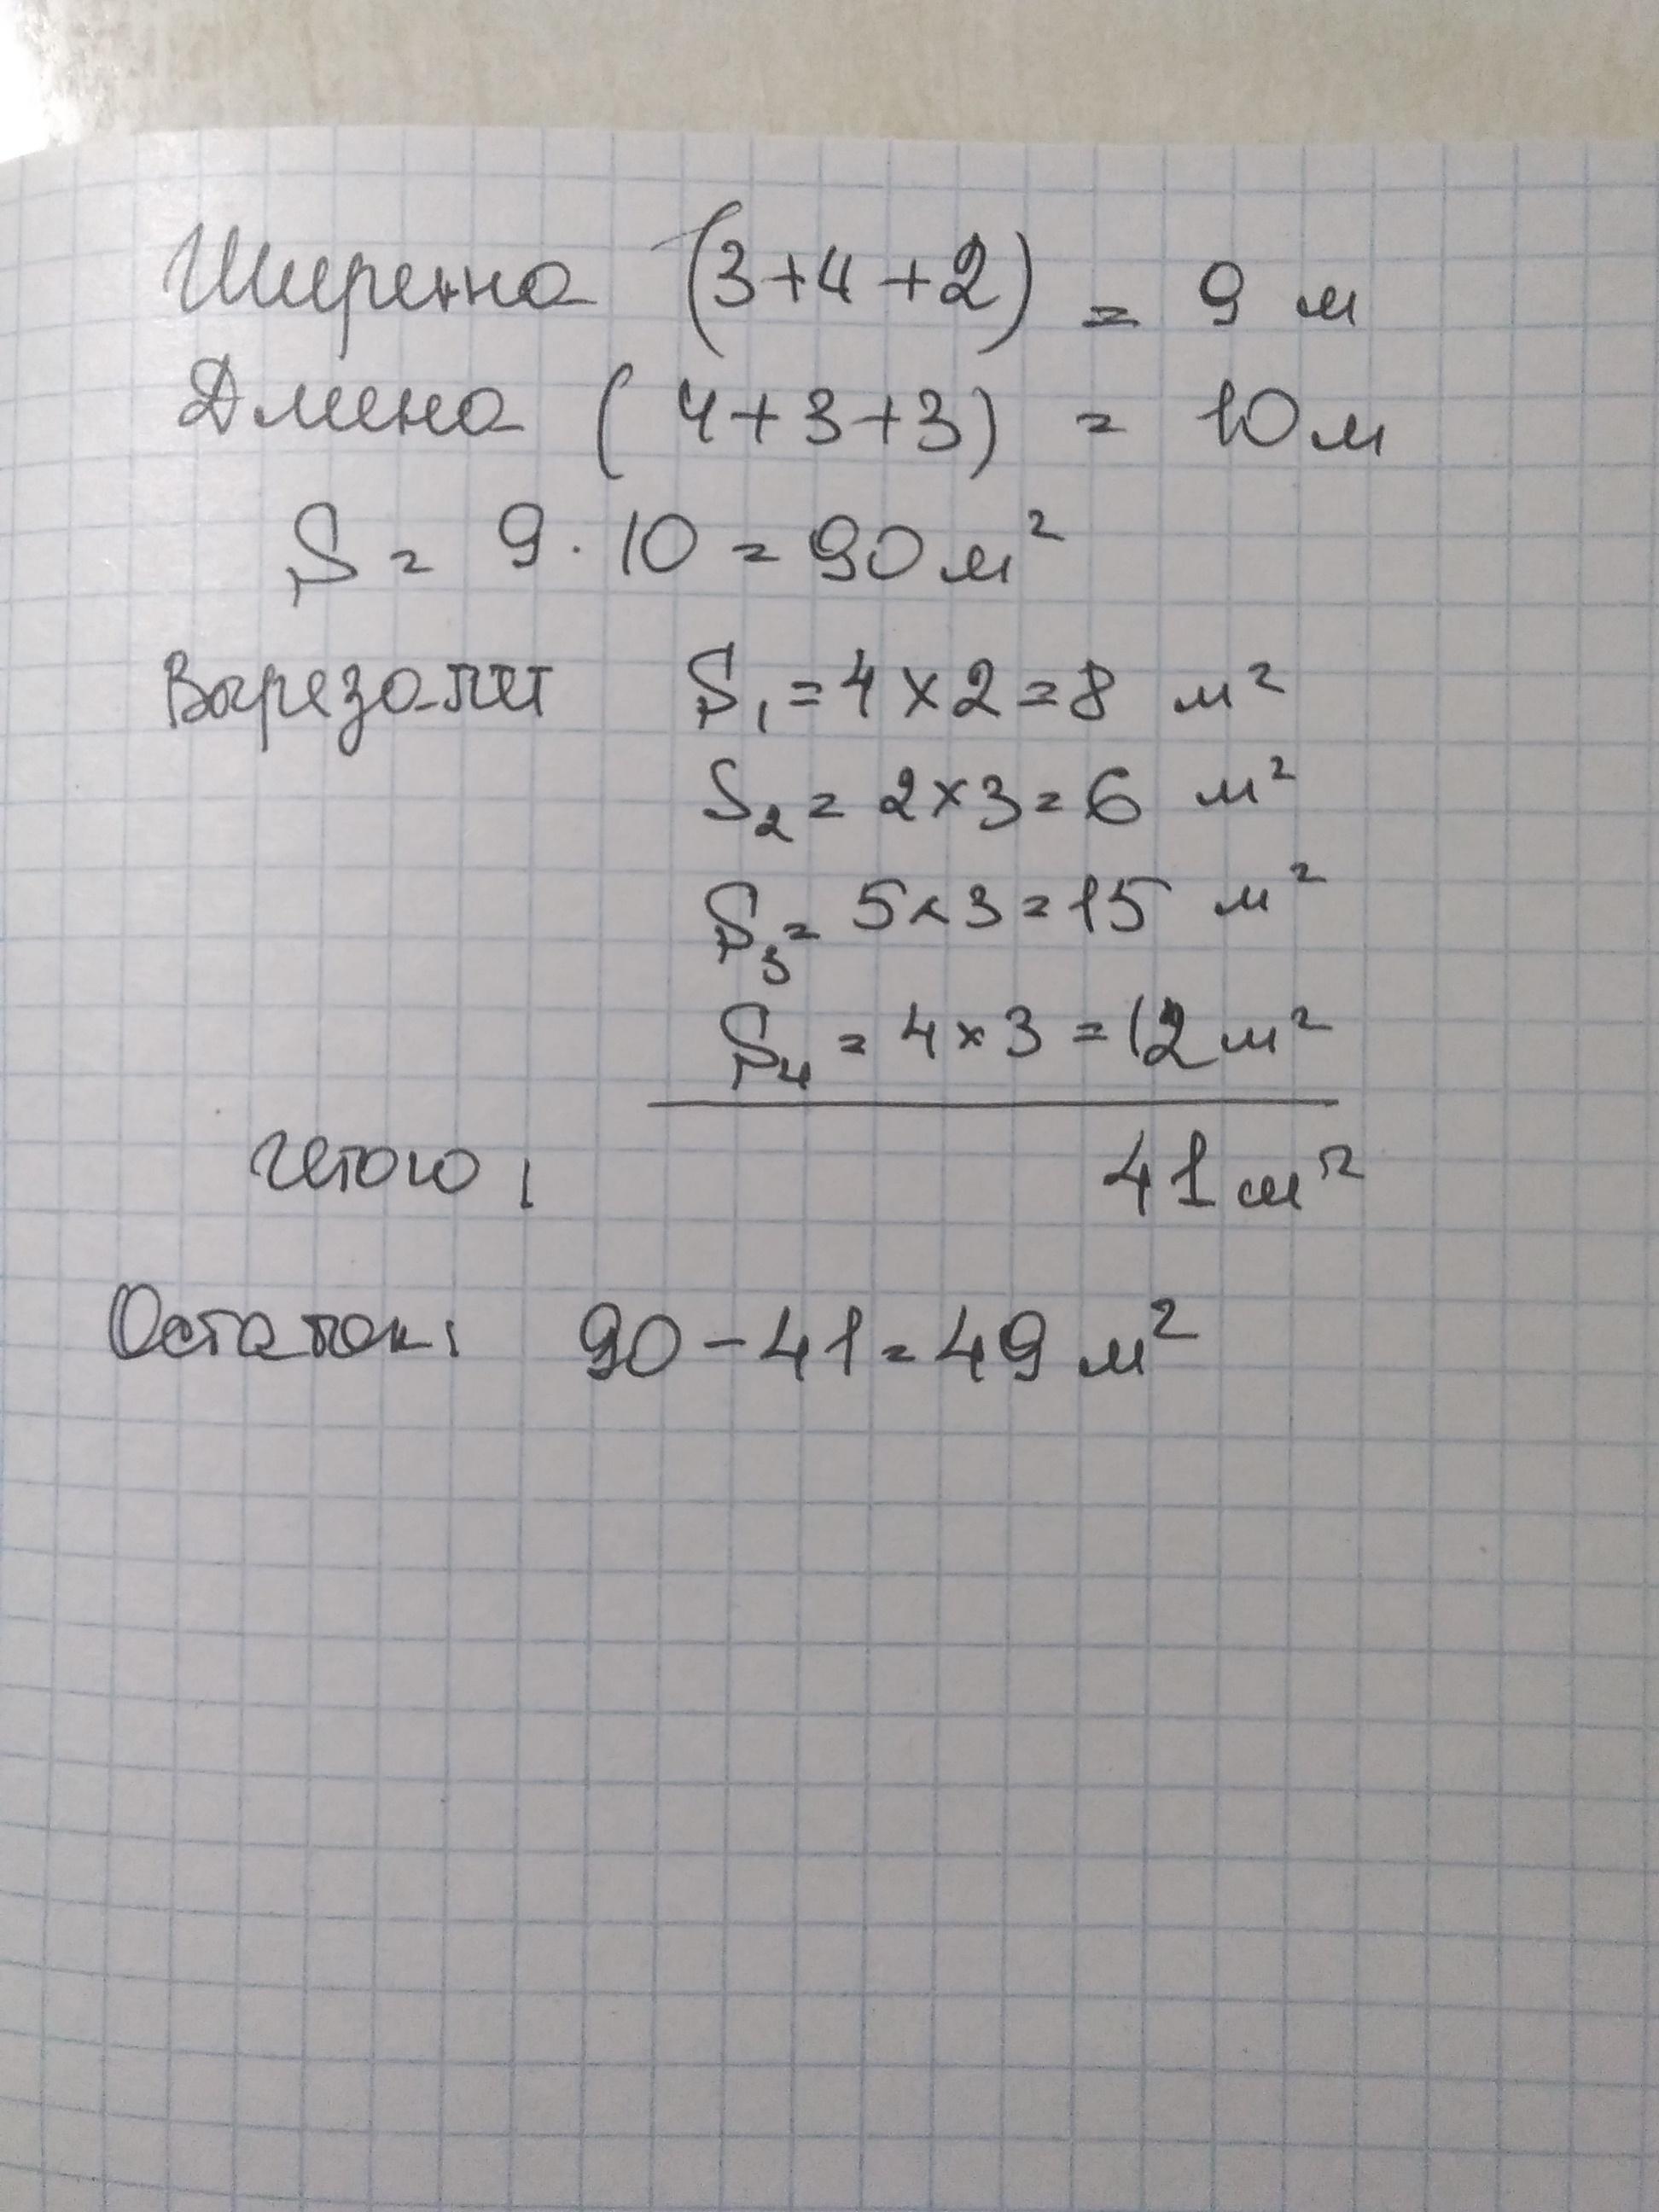 Ширина (3+4+2) = 9 м
Длина (4+3+3) = 10 м
S = 9 · 10 = 90 м²
Вырезали S₁ = 4 × 2 = 8 м²
S₂ = 2 × 3 = 6 м²
S₃ = 5 × 3 = 15 м²
S₄ = 4 × 3 = 12 м²
Итого: 41 м²
Остаток: 90 − 41 = 49 м²